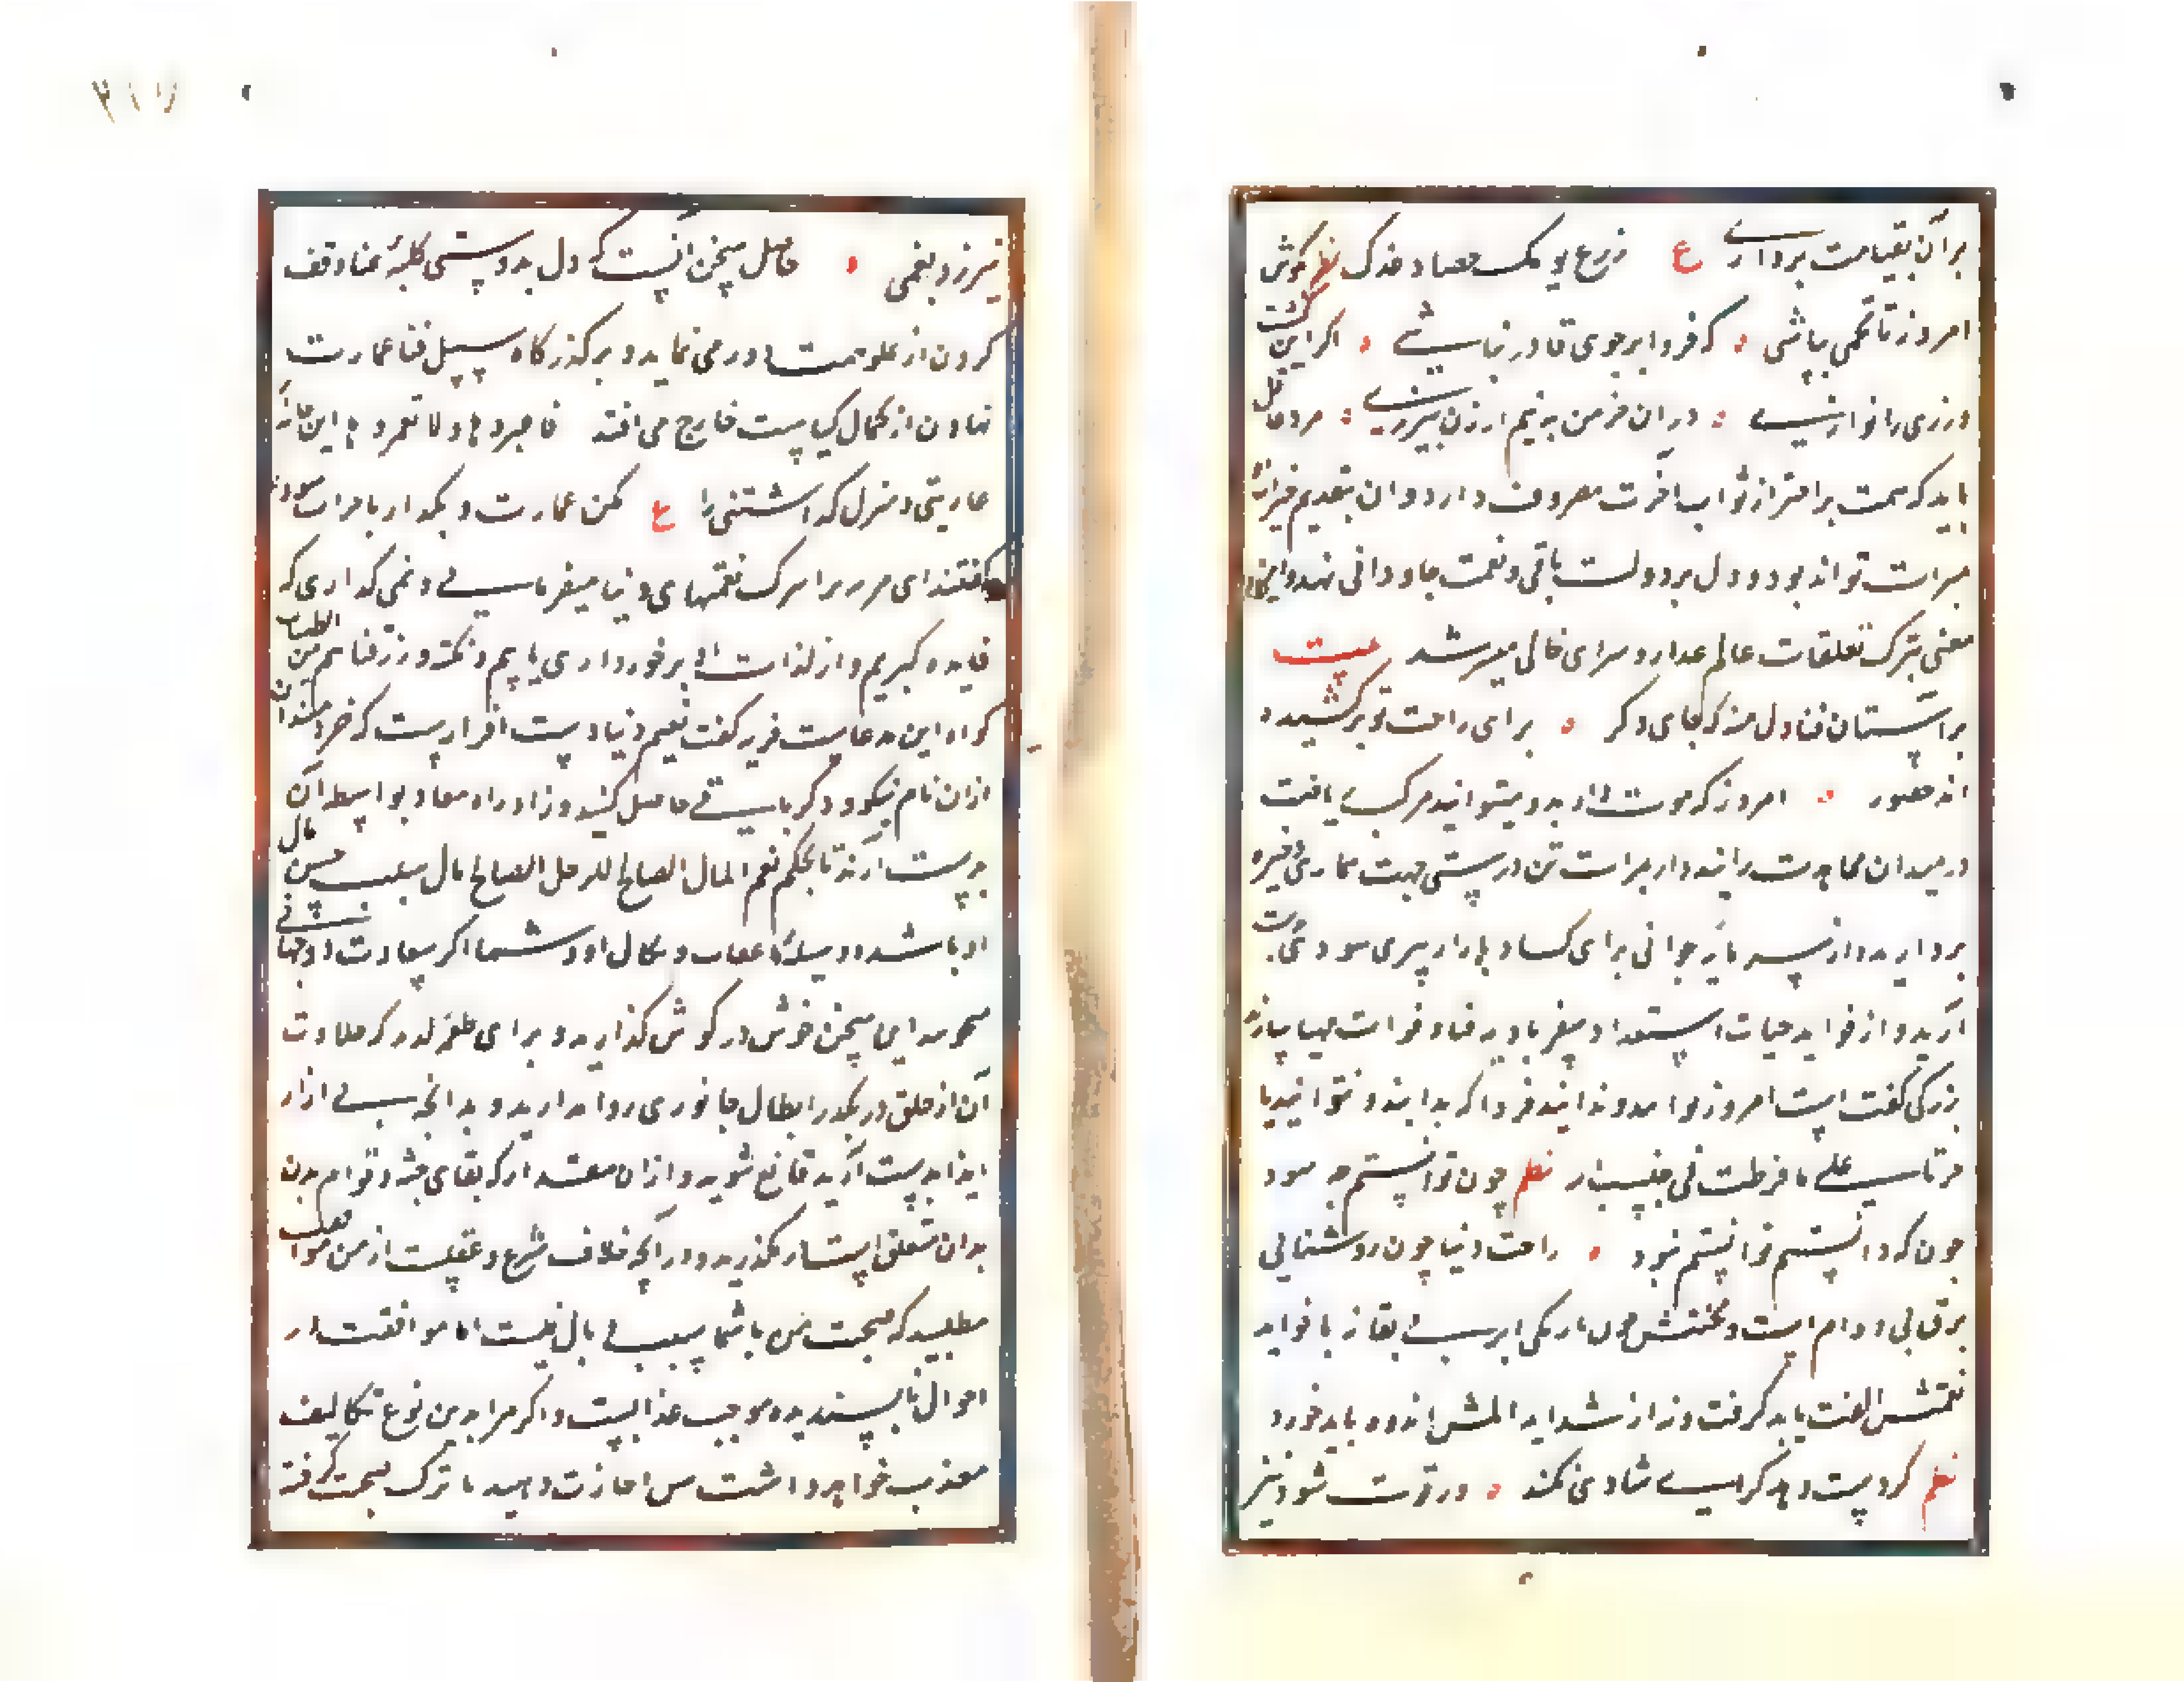 بر آن بقیامت برداری ع زرع یومک حصاد غدک نظم کوش
امروز تا تخمی بپاشی که فردا بر جوی قادر نباشی اگر این کشت
ورزی را نوازیی در آن خرمن به نیم ارزن نیرزی مرد عاقل
باید که همت بر احتراز ثواب آخرت مصروف دارد و آن بتقدیم خیرات و
مبرات تواند بود و دل بر دولت باقی و نعمت جاودانی نهد و این
معنی بترک تعلقات عالم غدار و سرای فانی میسر شد بیت
بر آستان فنا دل منه که جای دگر برای راحت تو برکشیده
اند قصور امروز که قوت دارید و میتوانید مرکب یافت
در میدان مجاهدت رانید و از برات تن درستی جهت بیماری ذخیره
بردارید و از سرمایه جوانی برای کساد بازار پیری سود بدست
آرید و از فواید حیات استعداد سفر بادیه فنا و فوات مهیا سازید
بزرگی گفته است امروز توانید و ندانید فردا که بدانید و نتوانید یا
حرتاسی علی ما فرطت فی جنب الله نظم چون توانستم چه سود
چون که دانستم توانستم نبود راحت دنیا چون روشنایی
برق بی دوام است و محنتش چون تاریکی ابر بی بقا نه با فواید
نعمتش الفت باید گرفت و نه از شداید المش اندوه باید خورد
نظم گر دست دهد کراسی شادی نکند ور فوت شود نیز
نیرزد بغمی حاصل سخن آنست که دل بدوستی کلبه عنا وقف
کردن از علو همت دور می نماید و بر گذرگاه سیل فنا عمارت
نهادن از کمال کیاست خارج می افتد فاعبروها ولا تعمروها این خانه
عاریتی و منزل گذاشتنی را ع مکن عمارت و بگذار تا خراب شود
گفتند ای مرد بر ما ترک نعمتهای دنیا میفرمایی و نمی گذاری که
فایده گیریم و از لذات او برخورداری یابیم و نکته و رزقناهم من الطیبات
گواه این مدعاست فرید گفت نعیم دنیا دست افزاریست که خردمندان
از آن نام نیکو و ذکر باقی حاصل کنند و زاد راه معاد بواسطه آن
بدست آرند تا بحکم نعم المال الصالح للرجل الصالح مال سبب حسن مال
او باشد و وسیله عقاب و نکال او و شما اگر سعادت دو جهانی
میجویید این سخن خوش در گوش گذارید و برای طعمه لذیذ که حلاوت
آن از حلق در نگذرد ابطال جانوری روا مدارید و بدانچه بی آزار
ایذا بدست آرید قانع شوید و از آن مقدار که بقای جثه و قوام بدن
بدان متعلق است در مگذرید و در آنچه خلاف شرع و عقلست از من موافقت
مطلبید که صحبت من با شما سبب بی بال نیست اما موافقت در
احوال ناپسندیده موجب عذابست و اگر مرا بدین نوع تکالیف
معذب خواهید داشت پس اجازت دهید تا ترک صحبت گرفته